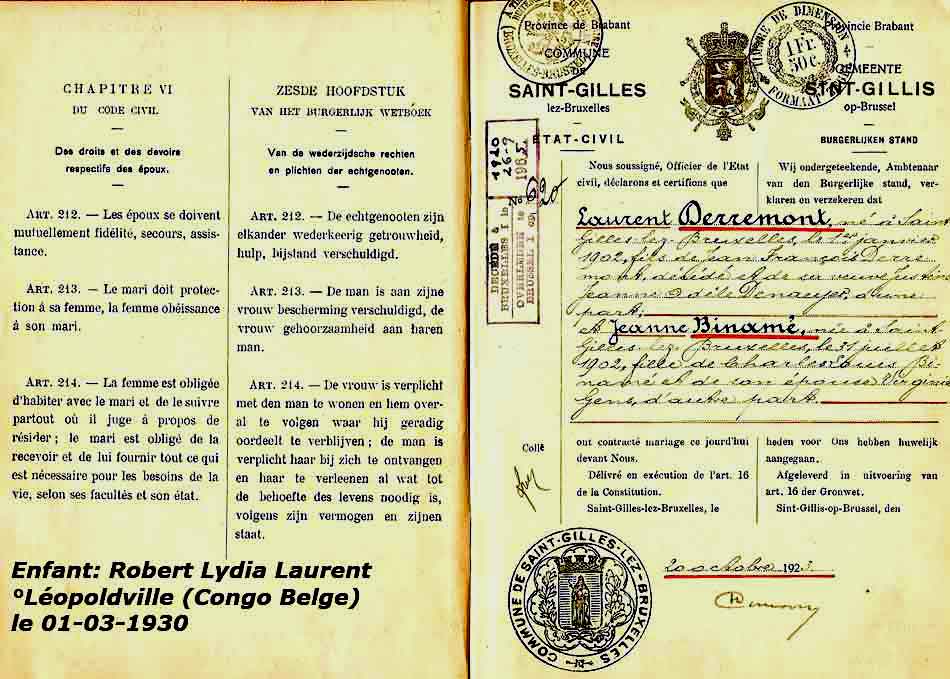 CHAPITRE VI
DU CODE CIVIL
Des droits et des devoirs
respectifs des époux.
ART. 212. — Les époux se doivent
mutuellement fidélité, secours, assis-
tance.
ART. 213. — Le mari doit protec-
tion à sa femme, la femme obéissance
à son mari.
ART. 214. — La femme est obligée
d'habiter avec le mari et de le suivre
partout où il juge à propos de
résider ; le mari est obligé de la
recevoir et de lui fournir tout ce qui
est nécessaire pour les besoins de la
vie, selon ses facultés et son état.
ZESDE HOOFDSTUK
VAN HET BURGERLIJK WETBOEK
Van de wederzijdsche rechten
en plichten der echtgenooten.
ART. 212. — De echtgenooten zijn
elkander wederkeerig getrouwheid,
hulp, bijstand verschuldigd.
ART. 213. — De man is aan zijne
vrouw bescherming verschuldigd, de
vrouw gehoorzaamheid aan haren
man.
ART. 214. — De vrouw is verplicht
met den man te wonen en hem over-
al te volgen waar hij geradig
oordeelt te verblijven ; de man is
verplicht haar bij zich te ontvangen
en haar te verleenen al wat tot
de behoefte des levens noodig is,
volgens zijn vermogen en zijnen
staat.
Enfant: Robert Lydia Laurent
°Léopoldville (Congo Belge)
le 01-03-1930
Province de Brabant
COMMUNE
DE
SAINT-GILLES
lez-Bruxelles
ETAT-CIVIL
TIMBRE DE DIMENSION
1 Fr.
50 c.
FORMAAT
Provincie Brabant
GEMEENTE
SINT-GILLIS
op-Brussel
BURGERLIJKEN STAND
No 620
DECEDE à
BRUXELLES 1 le
OVERLEDEN te
BRUSSEL 1 op
Nous soussigné, Officier de l'Etat
civil, déclarons et certifions que
Wij ondergeteekende, Ambtenaar
van den Burgerlijke stand, ver-
klaren en verzekeren dat
Laurent Derremont, né à Saint
Gilles-lez-Bruxelles, le 1er janvier
1902, fils de Jean François Derre
mont, décédé et de sa veuve Justine
Jeanne Adèle Denauyer, d'une
part;
et Jeanne Binamé, née à Saint-
Gilles-lez-Bruxelles, le 31 juillet
1902, fille de Charles Louis Bi-
namé et de son épouse Virginie
Gens, d'autre part.
Collé
ont contracté mariage ce jourd'hui
devant Nous.
Délivré en exécution de l'art. 16
de la Constitution.
Saint-Gilles-lez-Bruxelles, le
heden voor Ons hebben huwelijk
aangegaan.
Afgeleverd in uitvoering van
art. 16 der Gronwet.
Sint-Gillis-op-Brussel, den
20 octobre 1923.
COMMUNE DE SAINT-GILLES-LEZ-BRUXELLES